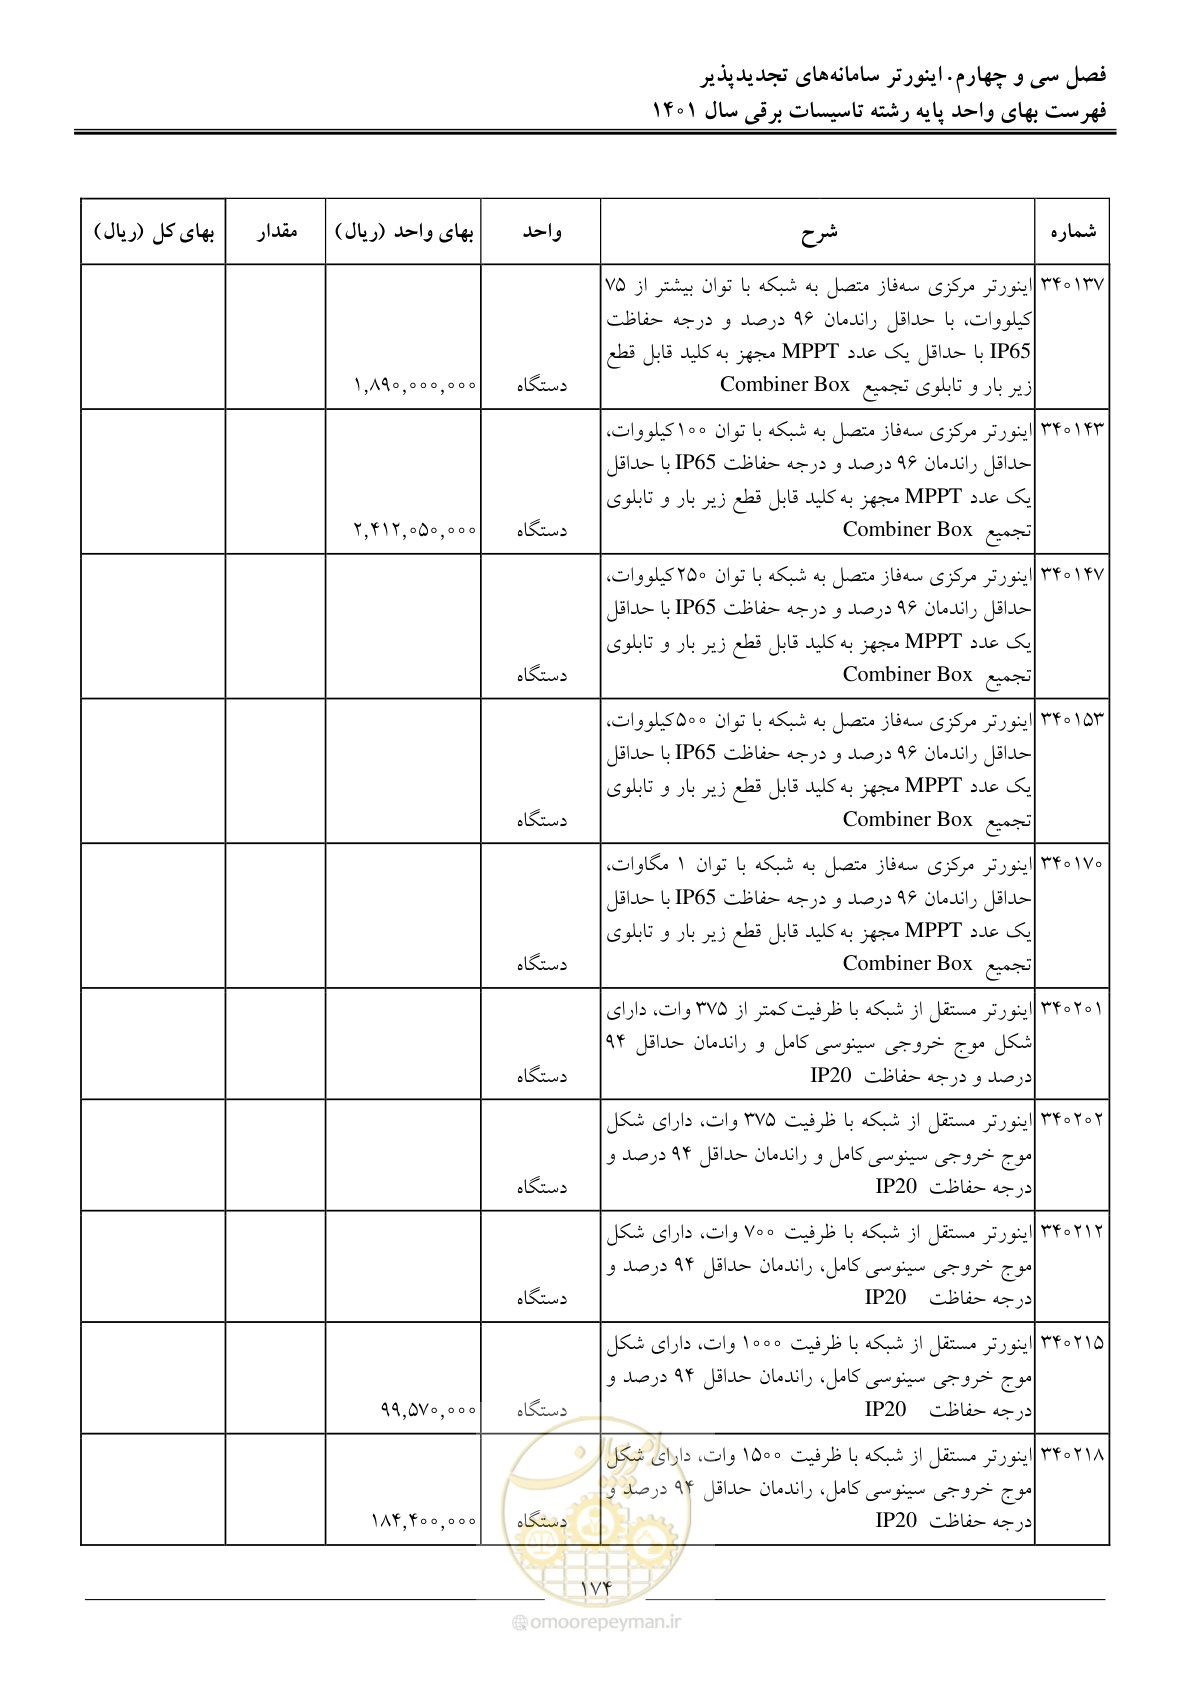 فصل سی و چهارم. اینورتر سامانه‌های تجدیدپذیر
فهرست بهای واحد پایه رشته تاسیسات برقی سال ۱۴۰۱
شماره شرح واحد بهای واحد (ریال) مقدار بهای کل (ریال)
۳۴۰۱۳۷ اینورتر مرکزی سه‌فاز متصل به شبکه با توان بیشتر از ۷۵
کیلووات، با حداقل راندمان ۹۶ درصد و درجه حفاظت
IP65 با حداقل یک عدد MPPT مجهز به کلید قابل قطع
زیر بار و تابلوی تجمیع Combiner Box دستگاه ۱,۸۹۰,۰۰۰,۰۰۰
۳۴۰۱۴۳ اینورتر مرکزی سه‌فاز متصل به شبکه با توان ۱۰۰کیلووات،
حداقل راندمان ۹۶ درصد و درجه حفاظت IP65 با حداقل
یک عدد MPPT مجهز به کلید قابل قطع زیر بار و تابلوی
تجمیع Combiner Box دستگاه ۲,۴۱۲,۰۵۰,۰۰۰
۳۴۰۱۴۷ اینورتر مرکزی سه‌فاز متصل به شبکه با توان ۲۵۰کیلووات،
حداقل راندمان ۹۶ درصد و درجه حفاظت IP65 با حداقل
یک عدد MPPT مجهز به کلید قابل قطع زیر بار و تابلوی
تجمیع Combiner Box دستگاه
۳۴۰۱۵۳ اینورتر مرکزی سه‌فاز متصل به شبکه با توان ۵۰۰کیلووات،
حداقل راندمان ۹۶ درصد و درجه حفاظت IP65 با حداقل
یک عدد MPPT مجهز به کلید قابل قطع زیر بار و تابلوی
تجمیع Combiner Box دستگاه
۳۴۰۱۷۰ اینورتر مرکزی سه‌فاز متصل به شبکه با توان ۱ مگاوات،
حداقل راندمان ۹۶ درصد و درجه حفاظت IP65 با حداقل
یک عدد MPPT مجهز به کلید قابل قطع زیر بار و تابلوی
تجمیع Combiner Box دستگاه
۳۴۰۲۰۱ اینورتر مستقل از شبکه با ظرفیت کمتر از ۳۷۵ وات، دارای
شکل موج خروجی سینوسی کامل و راندمان حداقل ۹۴
درصد و درجه حفاظت IP20 دستگاه
۳۴۰۲۰۲ اینورتر مستقل از شبکه با ظرفیت ۳۷۵ وات، دارای شکل
موج خروجی سینوسی کامل و راندمان حداقل ۹۴ درصد و
درجه حفاظت IP20 دستگاه
۳۴۰۲۱۲ اینورتر مستقل از شبکه با ظرفیت ۷۰۰ وات، دارای شکل
موج خروجی سینوسی کامل، راندمان حداقل ۹۴ درصد و
درجه حفاظت IP20 دستگاه
۳۴۰۲۱۵ اینورتر مستقل از شبکه با ظرفیت ۱۰۰۰ وات، دارای شکل
موج خروجی سینوسی کامل، راندمان حداقل ۹۴ درصد و
درجه حفاظت IP20 دستگاه ۹۹,۵۷۰,۰۰۰
۳۴۰۲۱۸ اینورتر مستقل از شبکه با ظرفیت ۱۵۰۰ وات، دارای شکل
موج خروجی سینوسی کامل، راندمان حداقل ۹۴ درصد و
درجه حفاظت IP20 دستگاه ۱۸۴,۴۰۰,۰۰۰
امور پیمان
۱۷۴
omoorepeyman.ir